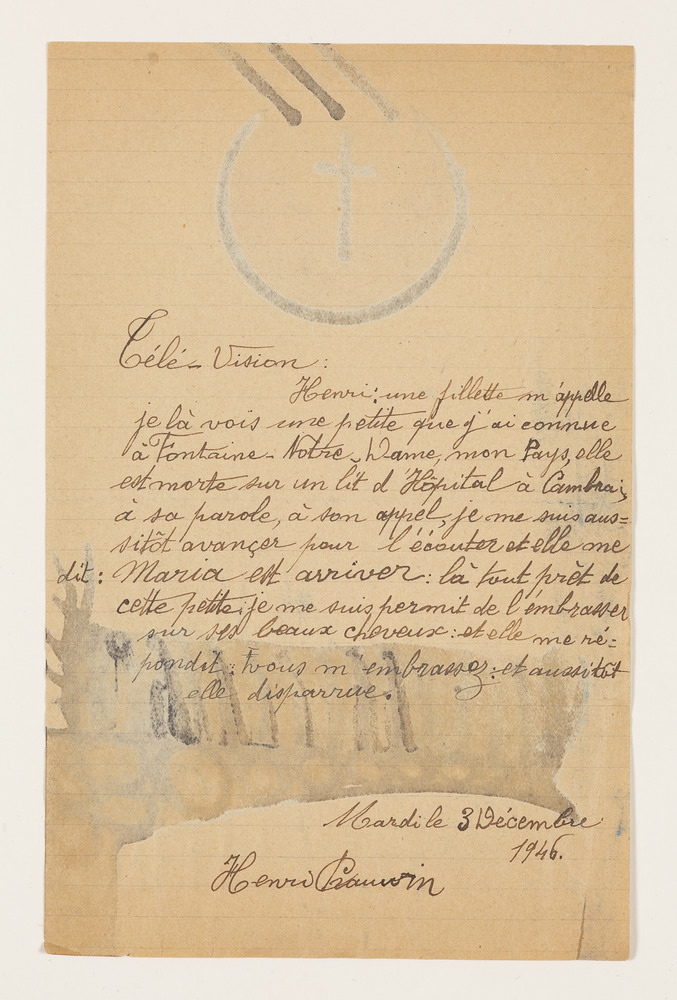 Télé-Vision:
Henri: une fillette m'appelle
je là vois une petite que j'ai connue
à Fontaine-Notre-Dame, mon Pays, elle
est morte sur un lit d'Hôpital à Cambrai,
à sa parole, à son appel, je me suis aus=
sitôt avançer pour l'écouter et elle me
dit: Maria est arriver: là tout prêt de
cette petite; je me suis permit de l'embrasser
sur ses beaux cheveux: et elle me ré-
pondit: vous m'embrassez: et aussitôt
elle disparrue.
Mardi le 3 Décembre
1946.
Henri